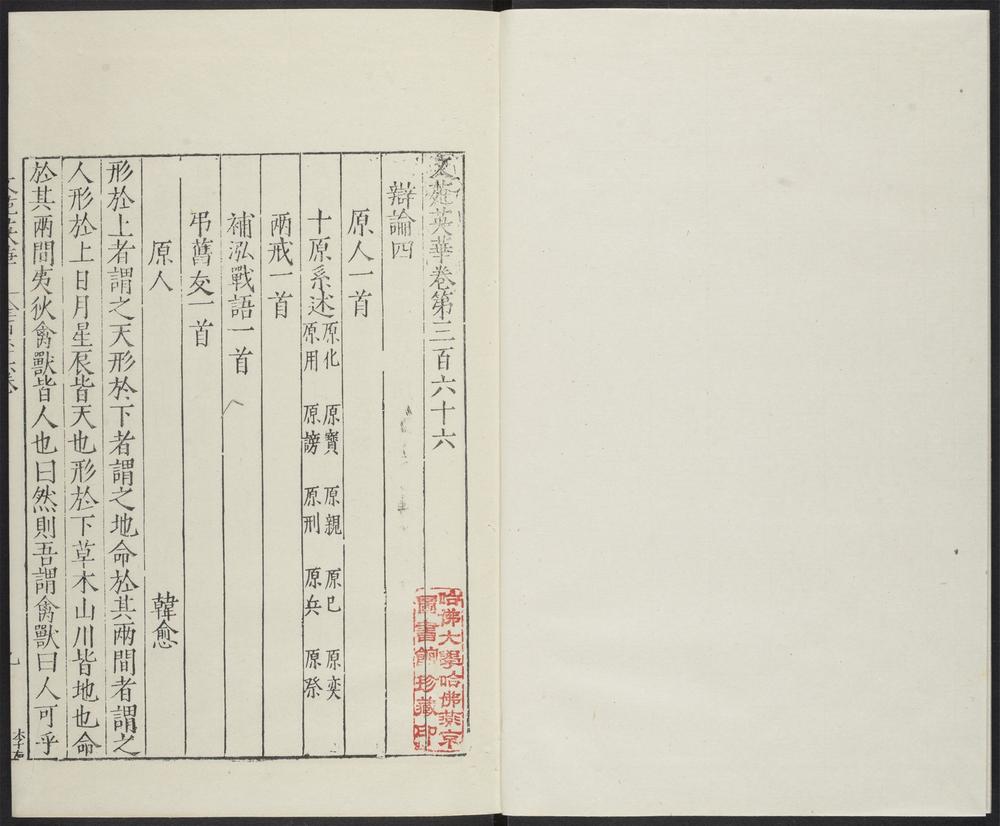 文苑英華卷第三百六十六
辯論四
原人一首
十原系述原化 原寶 原親 原已 原奕
原用 原謗 原刑 原兵 原祭
兩戒一首
補泓戰語一首
弔舊友一首
原人 韓愈
形於上者謂之天形於下者謂之地命於其兩間者謂之
人形於上日月星辰皆天也形於下草木山川皆地也命
於其兩間夷狄禽獸皆人也曰然則吾謂禽獸曰人可乎
哈佛大學哈佛燕京
圖書館珍藏印